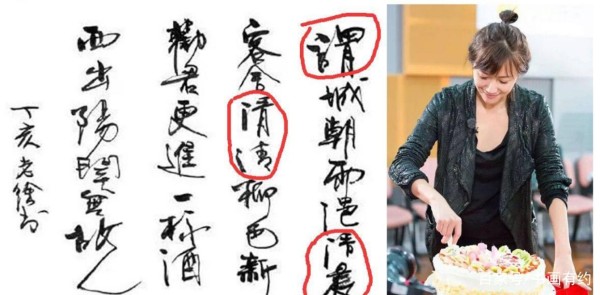 謂城朝雨浥清塵
客舍清清柳色新
勸君更進一杯酒
西出陽關無故人
丁亥 老徐书
百家号/书画有约